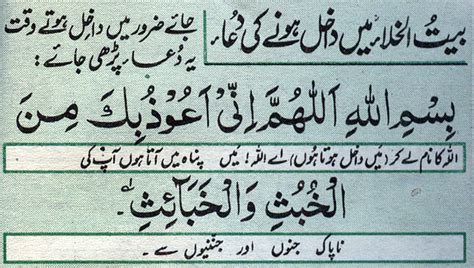 بیتُ الخلاء میں داخل ہونے کی دُعاء
جائے ضرور میں داخل ہوتے وقت
یہ دُعاء پڑھی جائے :
بِسْمِ اللهِ اَللّٰهُمَّ اِنِّىْ اَعُوْذُ بِكَ مِنَ
اللہ کا نام لے کر (میں داخل ہوتا ہوں) اے اللہ! میں پناہ میں آتا ہوں آپ کی
الْخُبُثِ وَالْخَبَائِثِ ۔
ناپاک جنوں اور جننیوں سے ۔